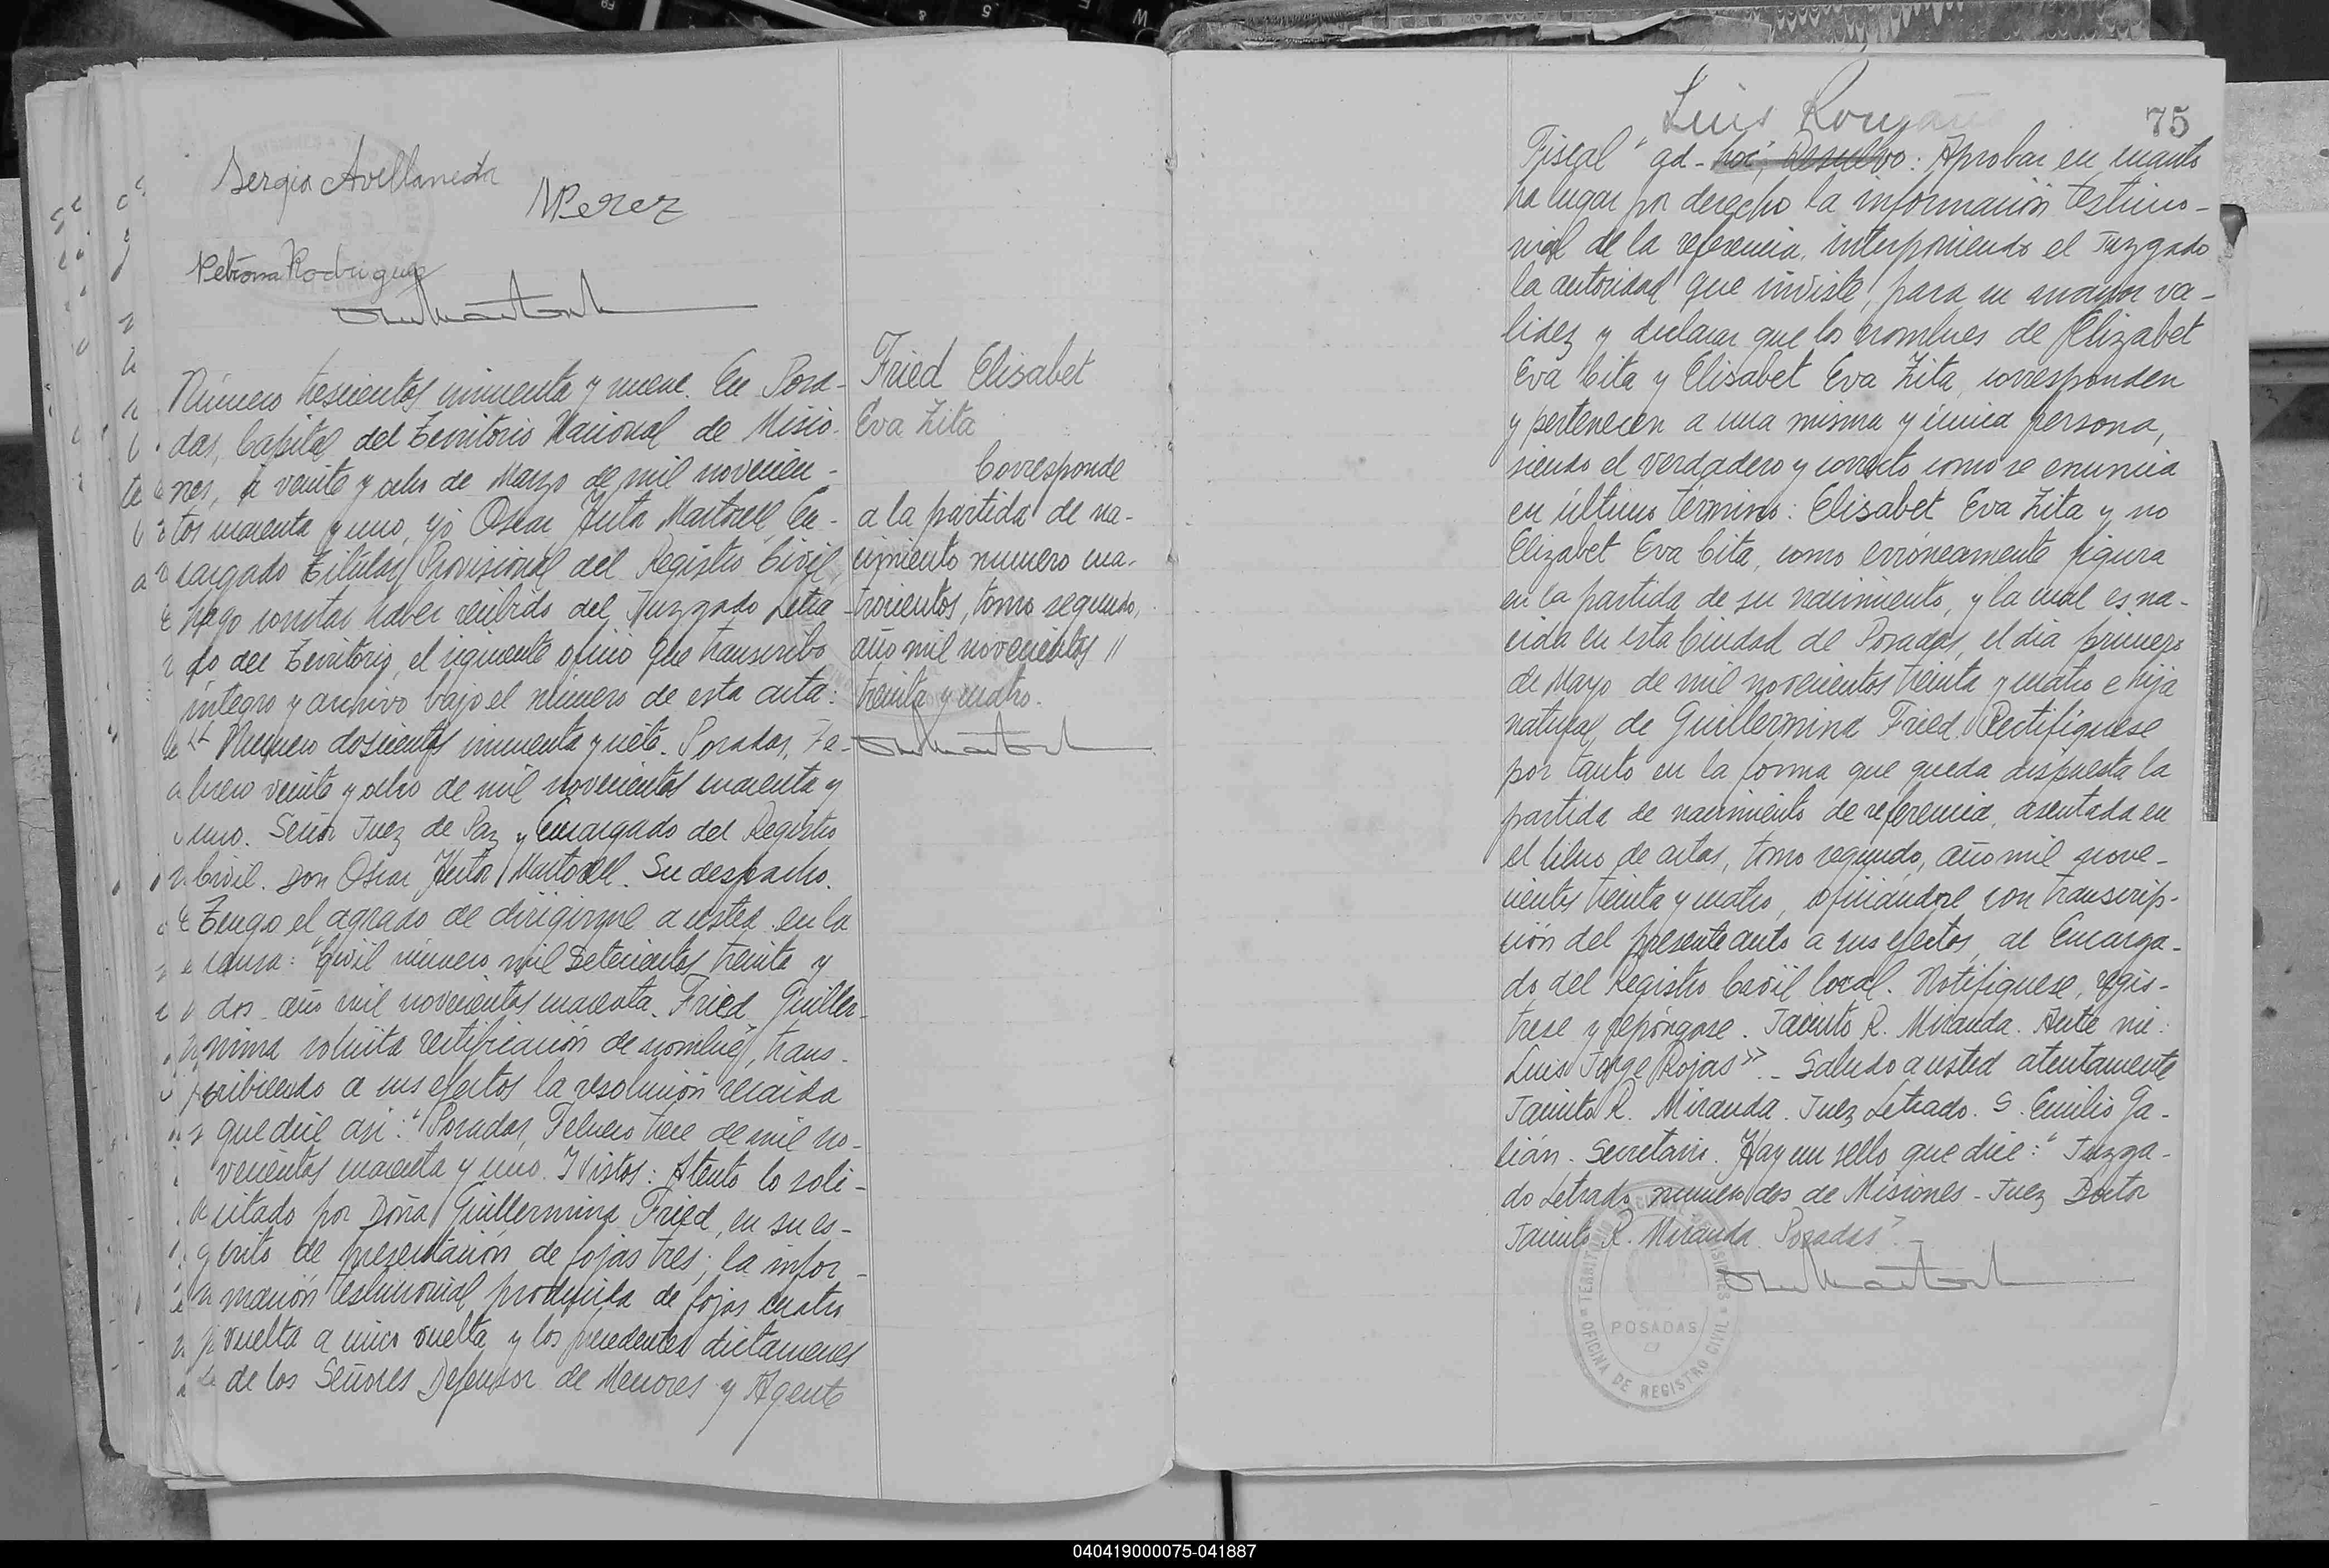 Sergio Avellaneda
MPerez
Petrona Rodriguez
Número trescientos cincuenta y nueve. En Posa-
das, Capital del Territorio Nacional de Misio-
nes, a veinte y ocho de Marzo de mil novecien-
tos cuarenta y uno, yo Oscar Martorell, En-
cargado Titular Provisional del Registro Civil,
hago constar haber recibido del Juzgado Letra-
do del Territorio, el siguiente oficio que transcribo
íntegro y archivo bajo el número de esta acta:
"Número doscientos cincuenta y siete. Posadas, Fe-
brero veinte y ocho de mil novecientos cuarenta y
uno. Señor Juez de Paz y Encargado del Registro
Civil. Don Oscar Martorell. Su despacho.
Tengo el agrado de dirigirme a usted en la
causa: "Civil número mil Setecientos treinta y
dos año mil novecientos cuarenta. Fried Guiller-
mina solicita rectificación de nombre", trans-
cribiendo a sus efectos la resolución recaida
que dice asi: "Posadas, Febrero trece de mil no-
vecientos cuarenta y uno. Y Vistos: Atento lo soli-
citado por Doña Guillermina Fried, en su es-
crito de presentación de fojas tres; la infor-
mación testimonial producida de fojas cuatro
vuelta a cinco vuelta y los precedentes dictamenes
de los Señores Defensor de Menores y Agente
Fried Elisabet
Eva Zita
Corresponde
a la partida de na-
cimiento numero cua-
trocientos, tomo segundo,
año mil novecientos //
treinta y cuatro.
Luis
75
Fiscal "ad-hoc", Resuelvo: Aprobar en cuanto
ha lugar por derecho la información testimo-
nial de la referencia, interponiendo el Juzgado
la autoridad que inviste, para su mayor va-
lidez y declarar que los nombres de Elizabet
Eva Cita y Elisabet Eva Zita, corresponden
y pertenecen a una misma y única persona,
siendo el verdadero y correcto como se enuncia
en último término: Elisabet Eva Zita y no
Elizabet Eva Cita, como erróneamente figura
en la partida de su nacimiento, y la cual es na-
cida en esta Ciudad de Posadas, el dia primero
de Mayo de mil novecientos treinta y cuatro e hija
natural de Guillermina Fried. Rectifíquese
por tanto en la forma que queda dispuesta la
partida de nacimiento de referencia, asentada en
el libro de actas, tomo segundo, año mil nove-
cientos treinta y cuatro, oficiandose con transcrip-
ción del presente auto a sus efectos, al Encarga-
do del Registro Civil local. Notifiquese, regis-
trese y repóngase. Jacinto R. Miranda. Ante mi:
Luis Jorge Rojas". - Saludo a usted atentamente
Jacinto R. Miranda. Juez Letrado. S. Emilio Ga-
lián. Secretario. Hay un sello que dice: "Juzga-
do Letrado numero dos de Misiones - Juez Doctor
Jacinto R. Miranda Posadas". -
TERRITORIO NACIONAL DE MISIONES
POSADAS
OFICINA DE REGISTRO CIVIL
040419000075-041887